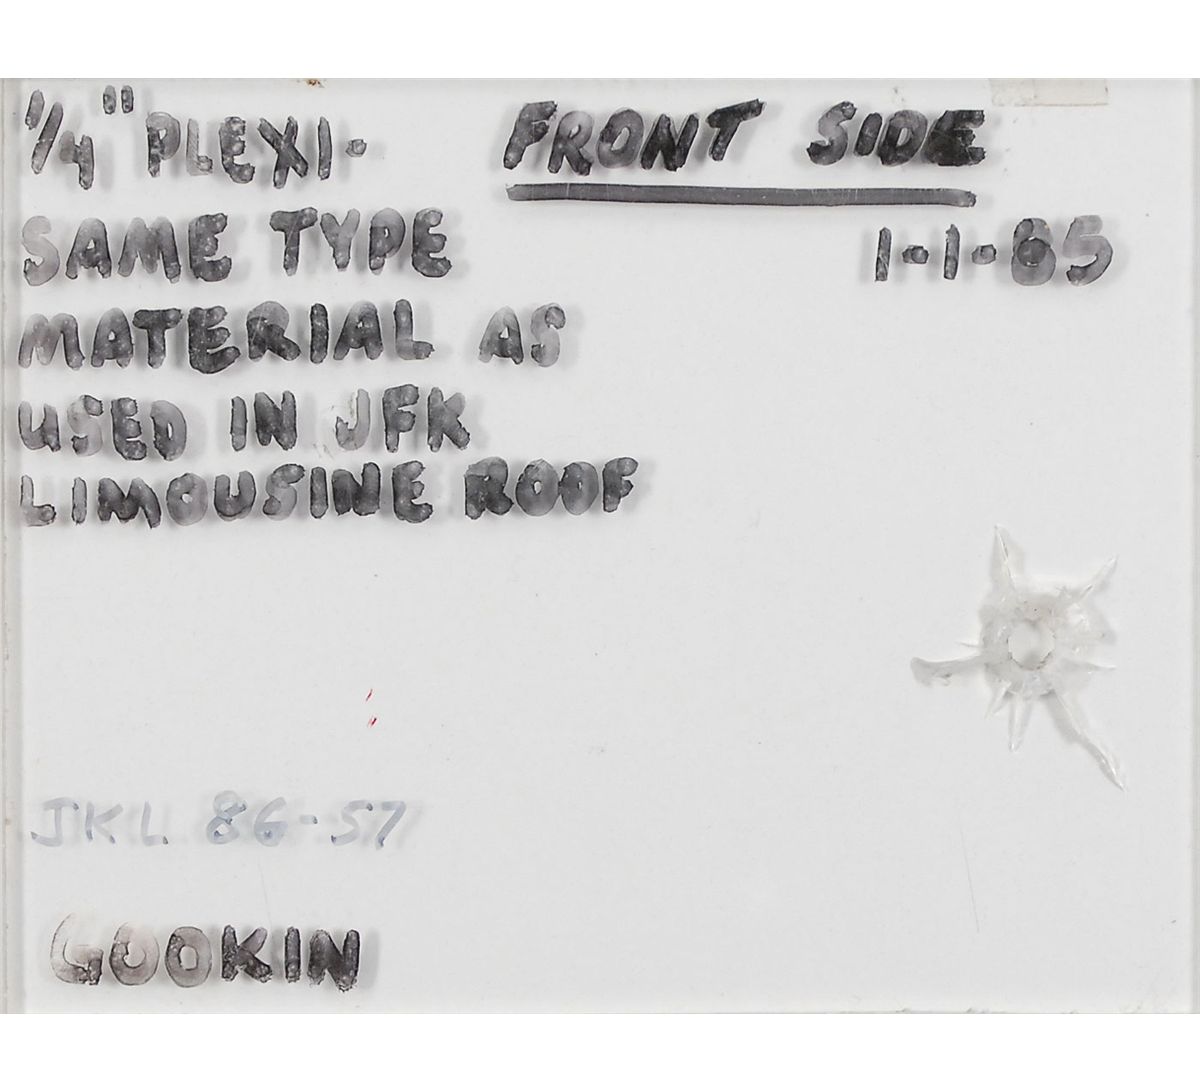 1/4" PLEXI-
SAME TYPE
MATERIAL AS
USED IN JFK
LIMOUSINE ROOF
FRONT SIDE
1-1-85
JKL 86-57
GOOKIN